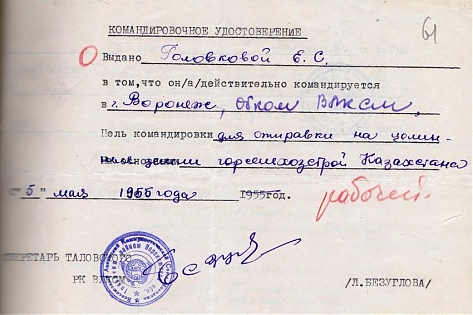 КОМАНДИРОВОЧНОЕ УДОСТОВЕРЕНИЕ
61
Выдано Головковой Е. С.
в том, что он/а/действительно командируется
в г. Воронеж, Обком ВЛКСМ,
Цель командировки для отправки на целин-
Казахстана
"5" мая 1955 года 1955год.
рабочей
СЕКРЕТАРЬ ТАЛОВСКОГО
РК ВЛКСМ
/Л.БЕЗУГЛОВА/